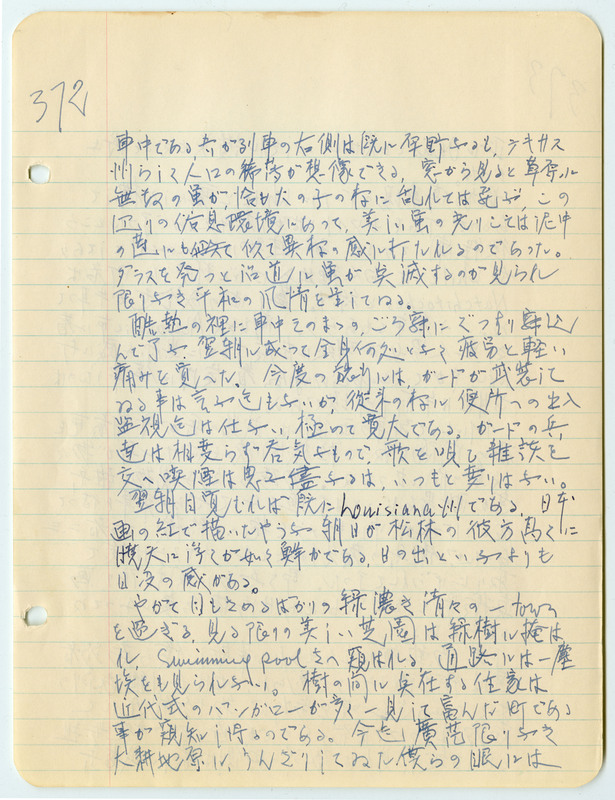 372
車中である吾が列車の右側は既に平野なるも、テキサス
州らして人口の稀薄が想像できる。窓から見ると草原に
無数の蛍が、恰も火の子の様に乱れては飛ぶ、この
辺りの信息環境にあって、美しい蛍の光りこそは泥中
の蓮にも 似て異様の感に打たれるのであった。
ダラスを発つと沿道に蛍が点滅するのが見られ
限りなき平和の風情を呈してゐる。
酷熱の裡に車中そのまゝの、ごろ寝にぐっすり寝込
んで了ふ 翌朝に成って全身何処となく疲労と軽い
痛みを覚へた。 今度の旅には、ガードが武装して
ゐる事は言ふ迄もないが、従来の様に便所への出入
監視迄は仕ない、極めて寛大である。ガードの兵
達は相変らず呑気なもので、歌を唄ひ雑談を
交へ喫煙は思ふ儘なるは、いつもと変りはない。
翌朝目覚むれば既にLouisiana州である、日本
画の紅で描いたやうな朝日が松林の彼方高くに
暁天に浮くが如く鮮かである、日の出といふよりも
日没の感がある。
やがて目もさめるばかりの緑濃き清々の一town
を過ぎる、見る限りの美しい芝園は緑樹に掩は
れ、Swimming poolさへ窺はれる 道路には一塵
埃をも見られない。 樹の間に点在する住家は
近代式のバンガローが多く一見して富んだ町である
事が窺知し得るのである。 今迄廣茫限りなき
大耕地原に、うんざりしてゐた僕らの眼には